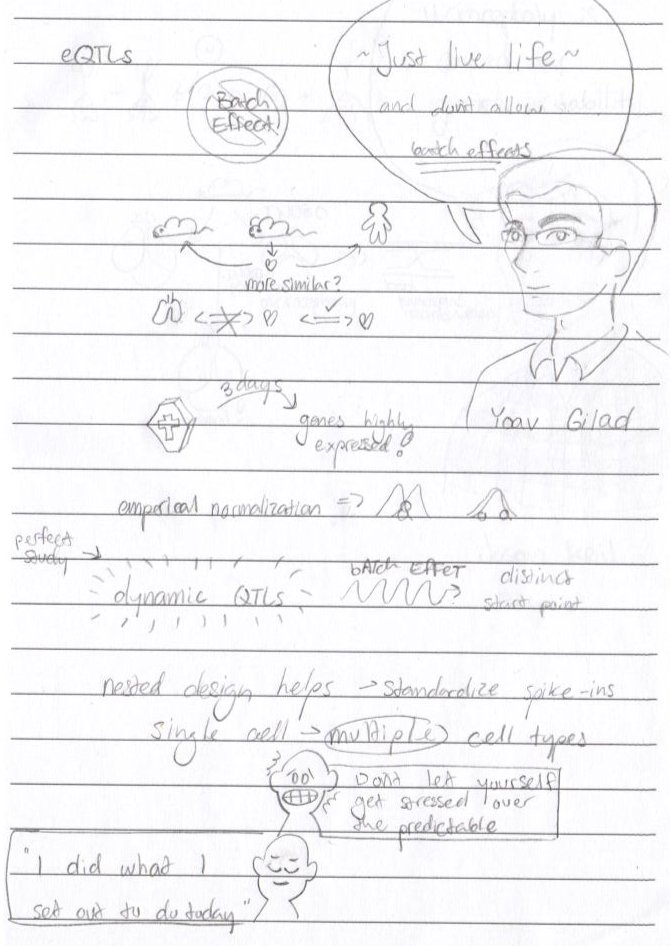 eQTLs
Batch
Effect!
~Just live life~
and dont allow
batch effects
more similar?
3 days
genes highly
expressed!
Yoav Gilad
emperical normalization =>
perfect
study
dynamic QTLs
bAtch EFFET
distinct
start point
nested design helps → standardize spike-ins
single cell → multiple cell types
Dont let yourself
get stressed over
the predictable
"I did what I
set out to do today"